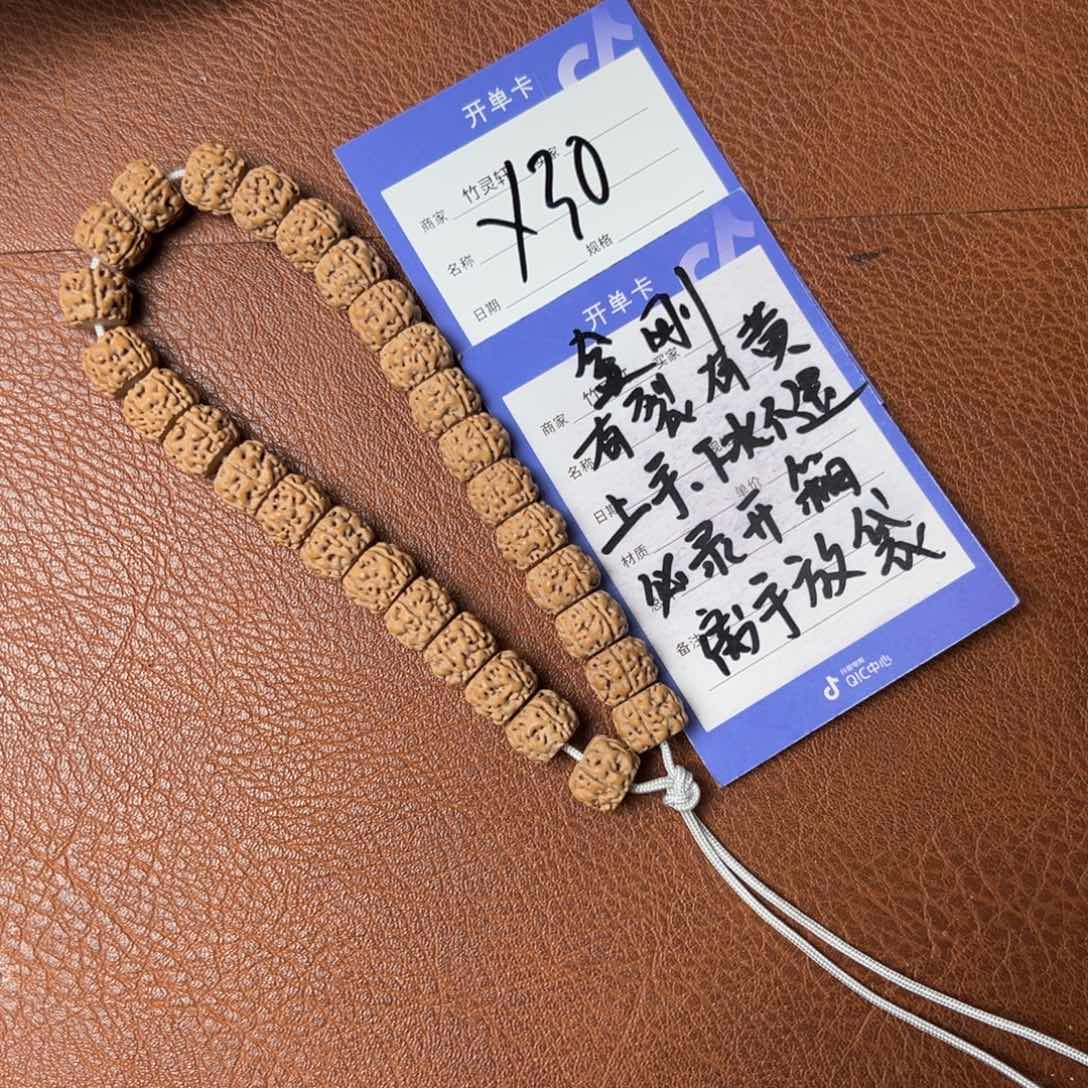 开单卡
商家 竹灵轩 买家
Y30
名称 规格
日期
开单卡
金刚
商家 竹 买家
有裂有黄
名称
上手、下水不退
日期 单价
材质
必录开箱
离手放袋
备注
抖音电商
QIC中心